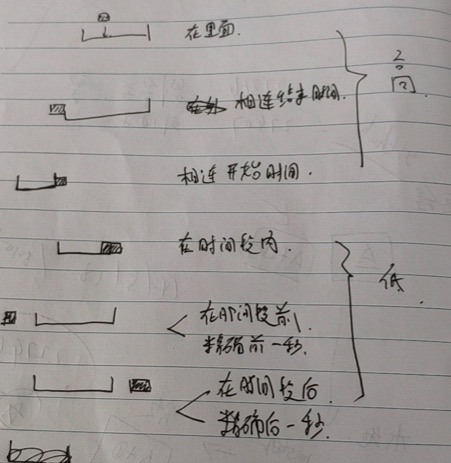 在里面.
相连结束时间.
高
相连开始时间.
在时间段内.
低.
在时间段前1
精确前一秒.
在时间段后.
精确后一秒.